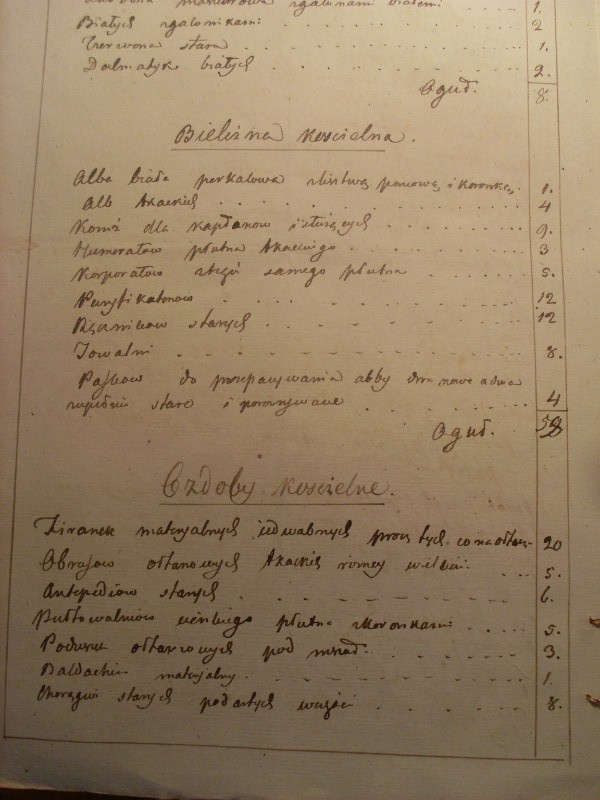 galonami białemi 1.
Białych z galonikami 2
Czerwona stara 1.
Dalmatyk białych 2.
Oguł. 8.
Bielizna koscielna.
Alba biała perkalowa i koronką 1.
Alb tkackich 4
Komż dla kapłanow i służących 9.
Humerałow płutna tkackiego 3
Korporałow z tegoż samego płutna 5.
Puryfikatorow 12
Ręcznikow starych 12
Towalni 8.
Paskow do przepasywania alby dwa nowe a dwa
zupełnie stare i porozrywane 4
Oguł. 58
Ozdoby koscielne.
Firanek materyalnych jedwabnych procz tych co na ołtarz 20
Obrusow ołtarzowych tkackich rożney wielkosci 5.
Antepediow starych 6.
cienkiego płutna z koronkami 5.
Poduszek ołtarzowych pod mszał 3.
Baldachin materyalny 1.
Chorągwi starych podartych 8.